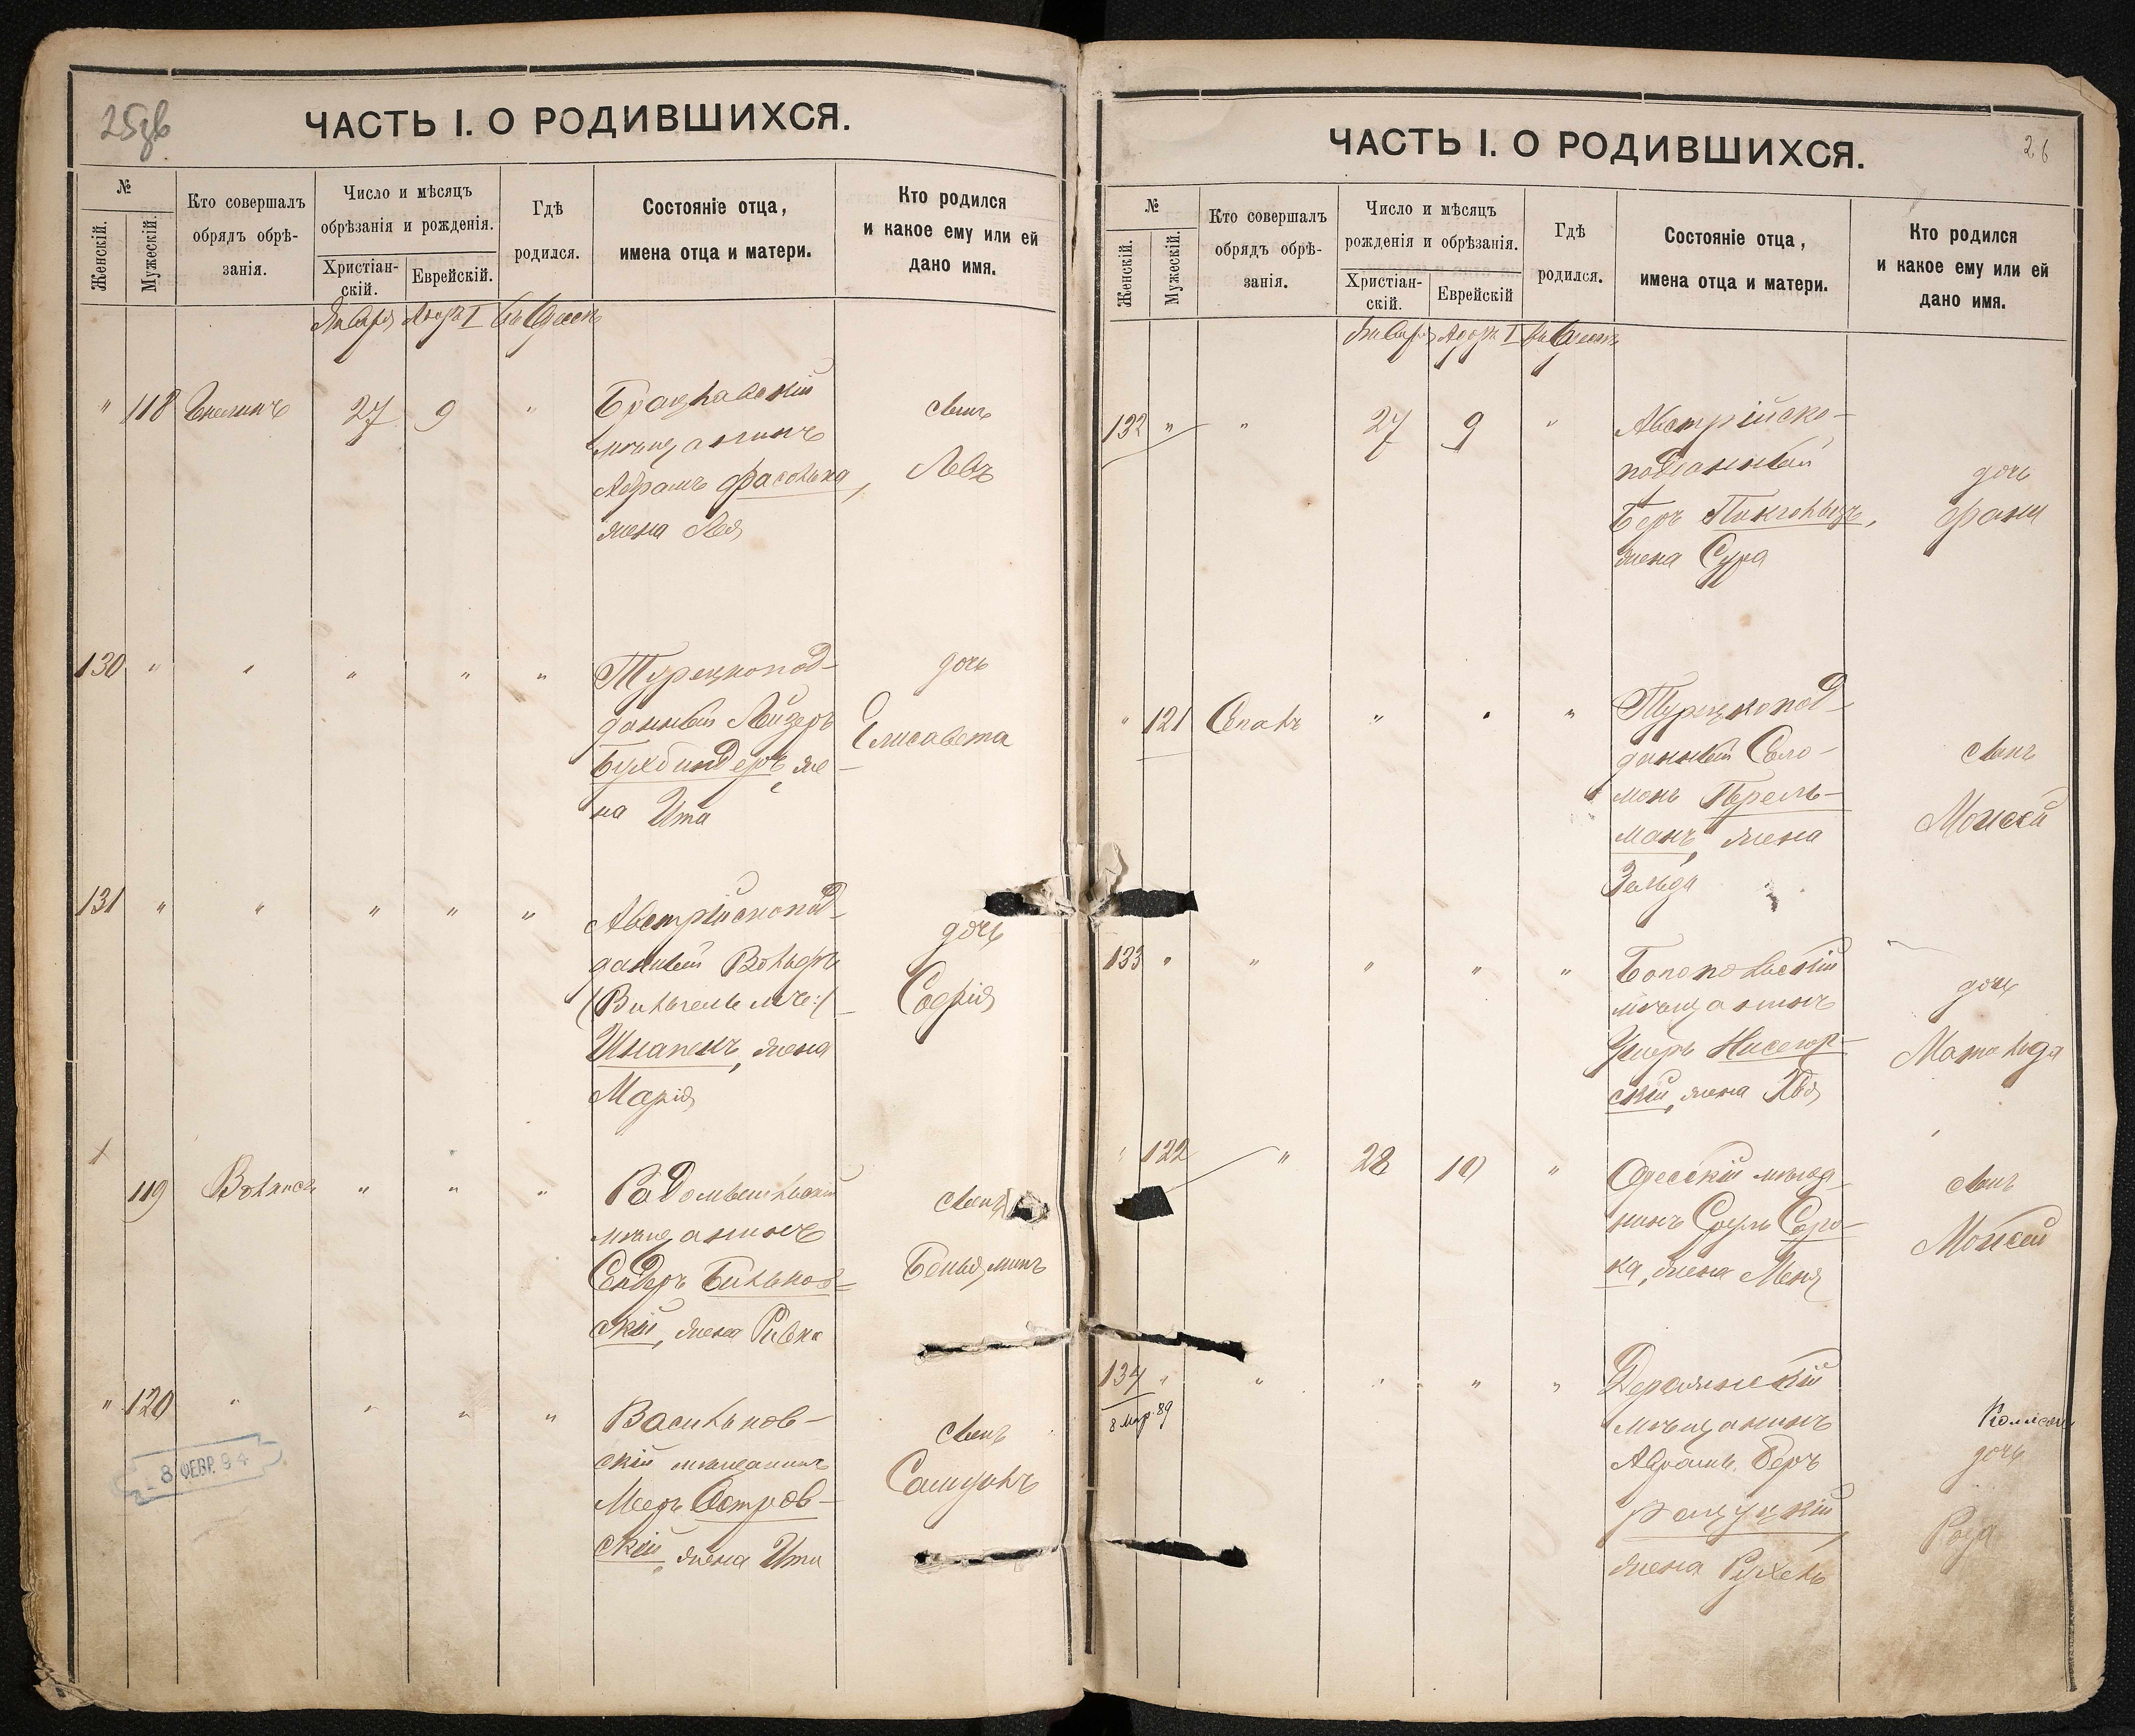 25зв
ЧАСТЬ I. О РОДИВШИХСЯ.
№
Женскій.
Мужескій.
Кто совершалъ
обрядъ обрѣ-
занія.
Число и мѣсяцъ
обрѣзанія и рожденія.
Христіан-
скій.
Еврейскій.
Гдѣ
родился.
Состояніе отца,
имена отца и матери.
Кто родился
и какое ему или ей
дано имя.
Января Адоръ I Въ Одессѣ
" 118 27 9 "
Брацлавскій
мѣщанинъ
Абрамъ Фасолька,
жена Лея
сынъ
Левъ
130 " " " " "
Турецкопод-
данный Лейзеръ
Бухбиндеръ, же-
на Ита
дочь
Елисавета
131 " " " " "
Австрійскопод-
данный Вольфъ
(Вильгельмъ)
Шкапекъ, жена
Марія
дочь
Софія
119 " " "
Радомысльскій
мѣщанинъ
Сендеръ Бильков-
скій, жена Ривка
сынъ
Беньяминъ
" 120 " " " "
Васильков-
скій мѣщанинъ
Мееръ Остров-
скій, жена Ита
сынъ
Самуилъ
8 ФЕВР. 94
26
ЧАСТЬ I. О РОДИВШИХСЯ.
№
Женскій.
Мужескій.
Кто совершалъ
обрядъ обрѣ-
занія.
Число и мѣсяцъ
рожденія и обрѣзанія.
Христіан-
скій.
Еврейскій
Гдѣ
родился.
Состояніе отца,
имена отца и матери.
Кто родился
и какое ему или ей
дано имя.
Января Адоръ I Въ Одессѣ
132 " " 27 9 "
Австрійско-
подданный
Беръ
жена Сура
дочь
Фани
" 121 " " "
Турецкопод-
данный Соло-
монъ Перель-
манъ, жена
Зельда
сынъ
Моисей
133 " " " " "
мѣщанинъ
Ушеръ Нисегор-
скій, жена Хая
дочь
Матильда
" 122 " 28 10 "
Одесскій мѣща-
нинъ Сруль Соро-
ка, жена Меня
сынъ
Моисей
134 " " " " "
8 Мар. 89
мѣщанинъ
Абрамъ Беръ
жена Рухель
дочь
Роза